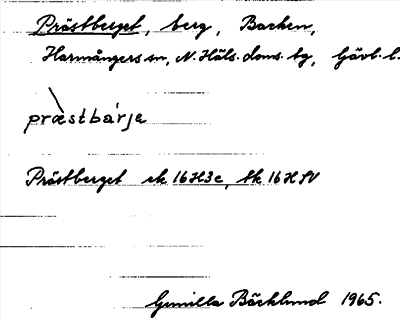 Prästberget, berg, Backen,
Harmångers sn, N. Häls. doms. tg, Gävl. l.
præstbàrje
Prästberget ek 16H3c, tk 16H SV
Gunilla Bäcklund 1965.